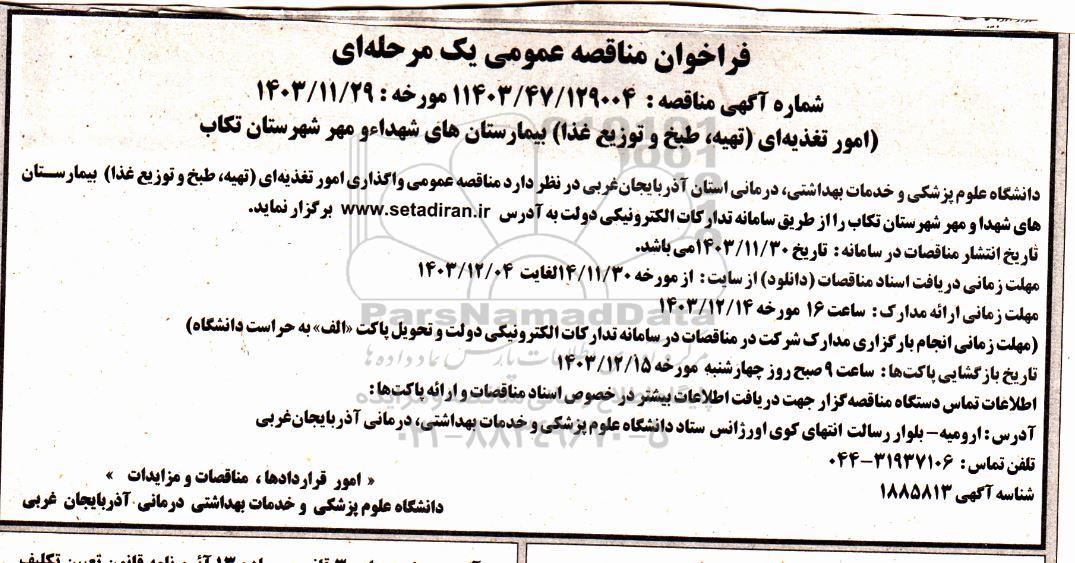 فراخوان مناقصه عمومی یک مرحله‌ای
شماره آگهی مناقصه : ۱۱۴۰۳/۴۷/۱۲۹۰۰۴ مورخه : ۱۴۰۳/۱۱/۲۹
(امور تغذیه‌ای (تهیه، طبخ و توزیع غذا) بیمارستان های شهداءو مهر شهرستان تکاب
دانشگاه علوم پزشکی و خدمات بهداشتی، درمانی استان آذربایجان‌غربی در نظر دارد مناقصه عمومی واگذاری امور تغذیه‌ای (تهیه، طبخ و توزیع غذا) بیمارستان
های شهدا و مهر شهرستان تکاب را از طریق سامانه تدارکات الکترونیکی دولت به آدرس www.setadiran.ir برگزار نماید.
تاریخ انتشار مناقصات در سامانه : تاریخ ۱۴۰۳/۱۱/۳۰می باشد.
مهلت زمانی دریافت اسناد مناقصات (دانلود) از سایت : از مورخه ۱۴/۱۱/۳۰لغایت ۱۴۰۳/۱۲/۰۴
مهلت زمانی ارائه مدارک : ساعت ۱۶ مورخه ۱۴۰۳/۱۲/۱۴
ParsNamadData
(مهلت زمانی انجام بارگزاری مدارک شرکت در مناقصات در سامانه تدارکات الکترونیکی دولت و تحویل پاکت «الف» به حراست دانشگاه)
تاریخ بازگشایی پاکت‌ها : ساعت ۹ صبح روز چهارشنبه مورخه ۱۴۰۳/۱۲/۱۵
اطلاعات تماس دستگاه مناقصه‌گزار جهت دریافت اطلاعات بیشتر در خصوص اسناد مناقصات و ارائه پاکت‌ها :
آدرس : ارومیه – بلوار رسالت انتهای کوی اورژانس ستاد دانشگاه علوم پزشکی و خدمات بهداشتی، درمانی آذربایجان‌غربی
تلفن تماس : ۰۴۴-۳۱۹۳۷۱۰۶
شناسه آگهی ۱۸۸۵۸۱۳
« امور قراردادها ، مناقصات و مزایدات »
دانشگاه علوم پزشکی و خدمات بهداشتی درمانی آذربایجان غربی